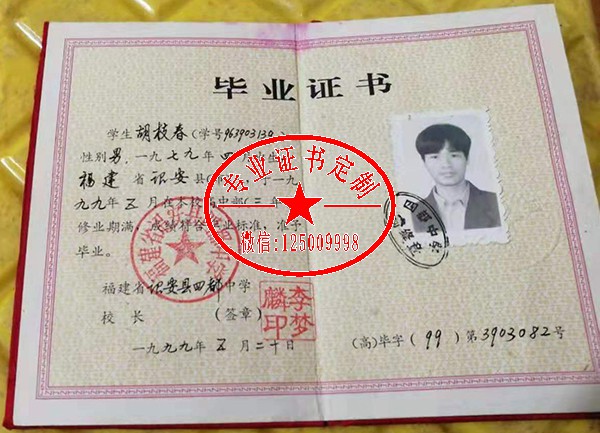 毕业证书
学生 胡枝春 (学号963903130)
性别男,一九七九年四月
福建省诏安县
九九年五月在本校高中部
修业期满,成绩符合毕业标准,准予
毕业。
福建省诏安县四都中学
校 长 (签章)
李梦麟印
一九九九年五月二十日
(高)毕字(99)第3903082号
专业证书定制
微信:125009998